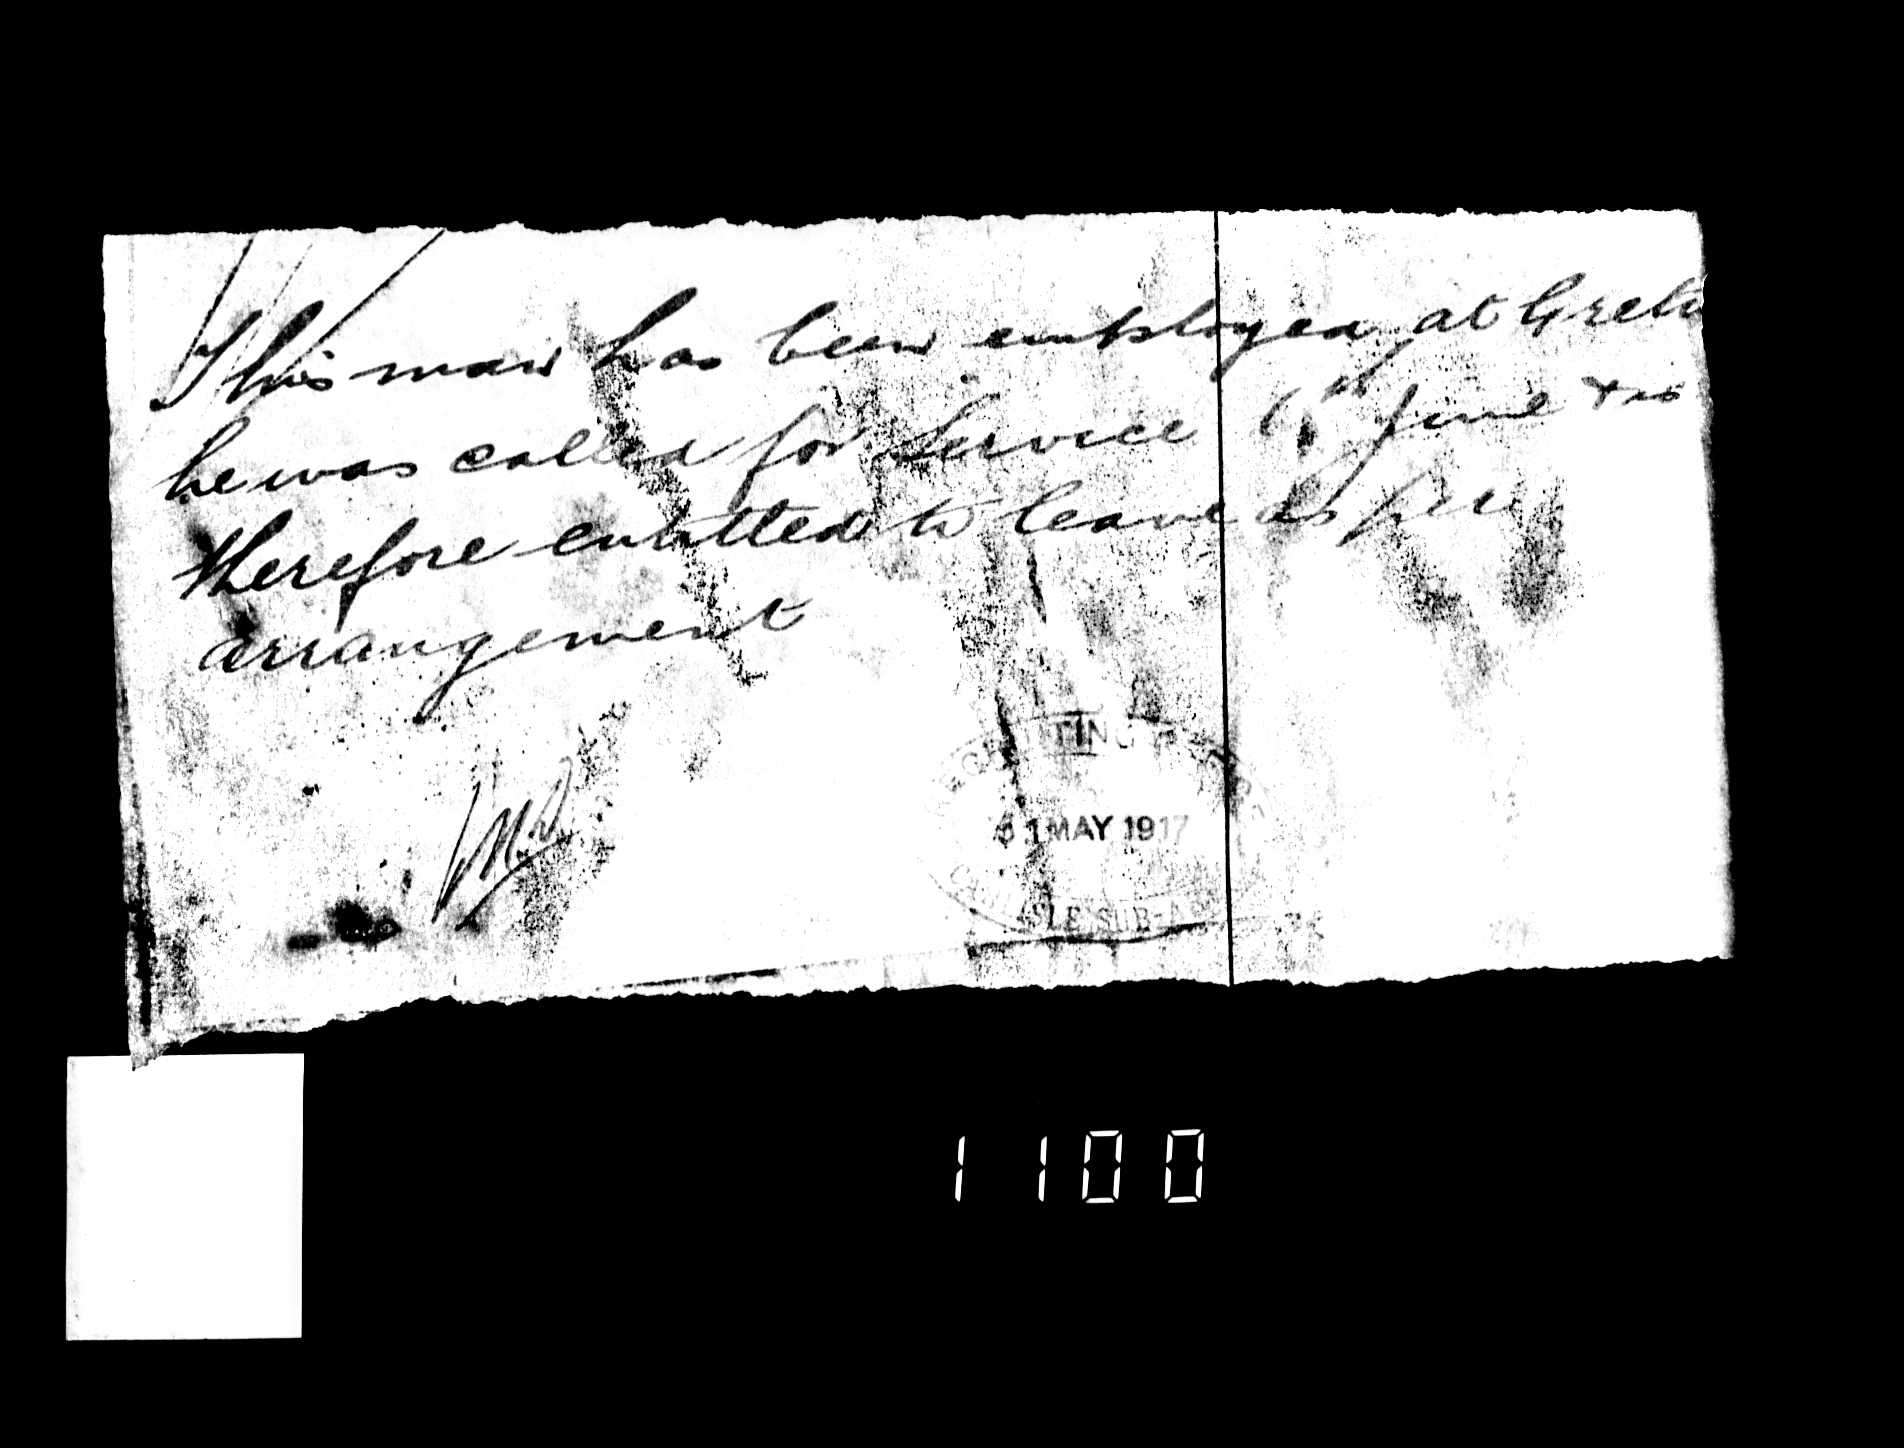 This man has been employed at Gretn
he was called for Service 6th June & is
therefore entitled to leave as per
arrangement
RECRUITING
31 MAY 1917
CARLISLE SUB-A
1 100